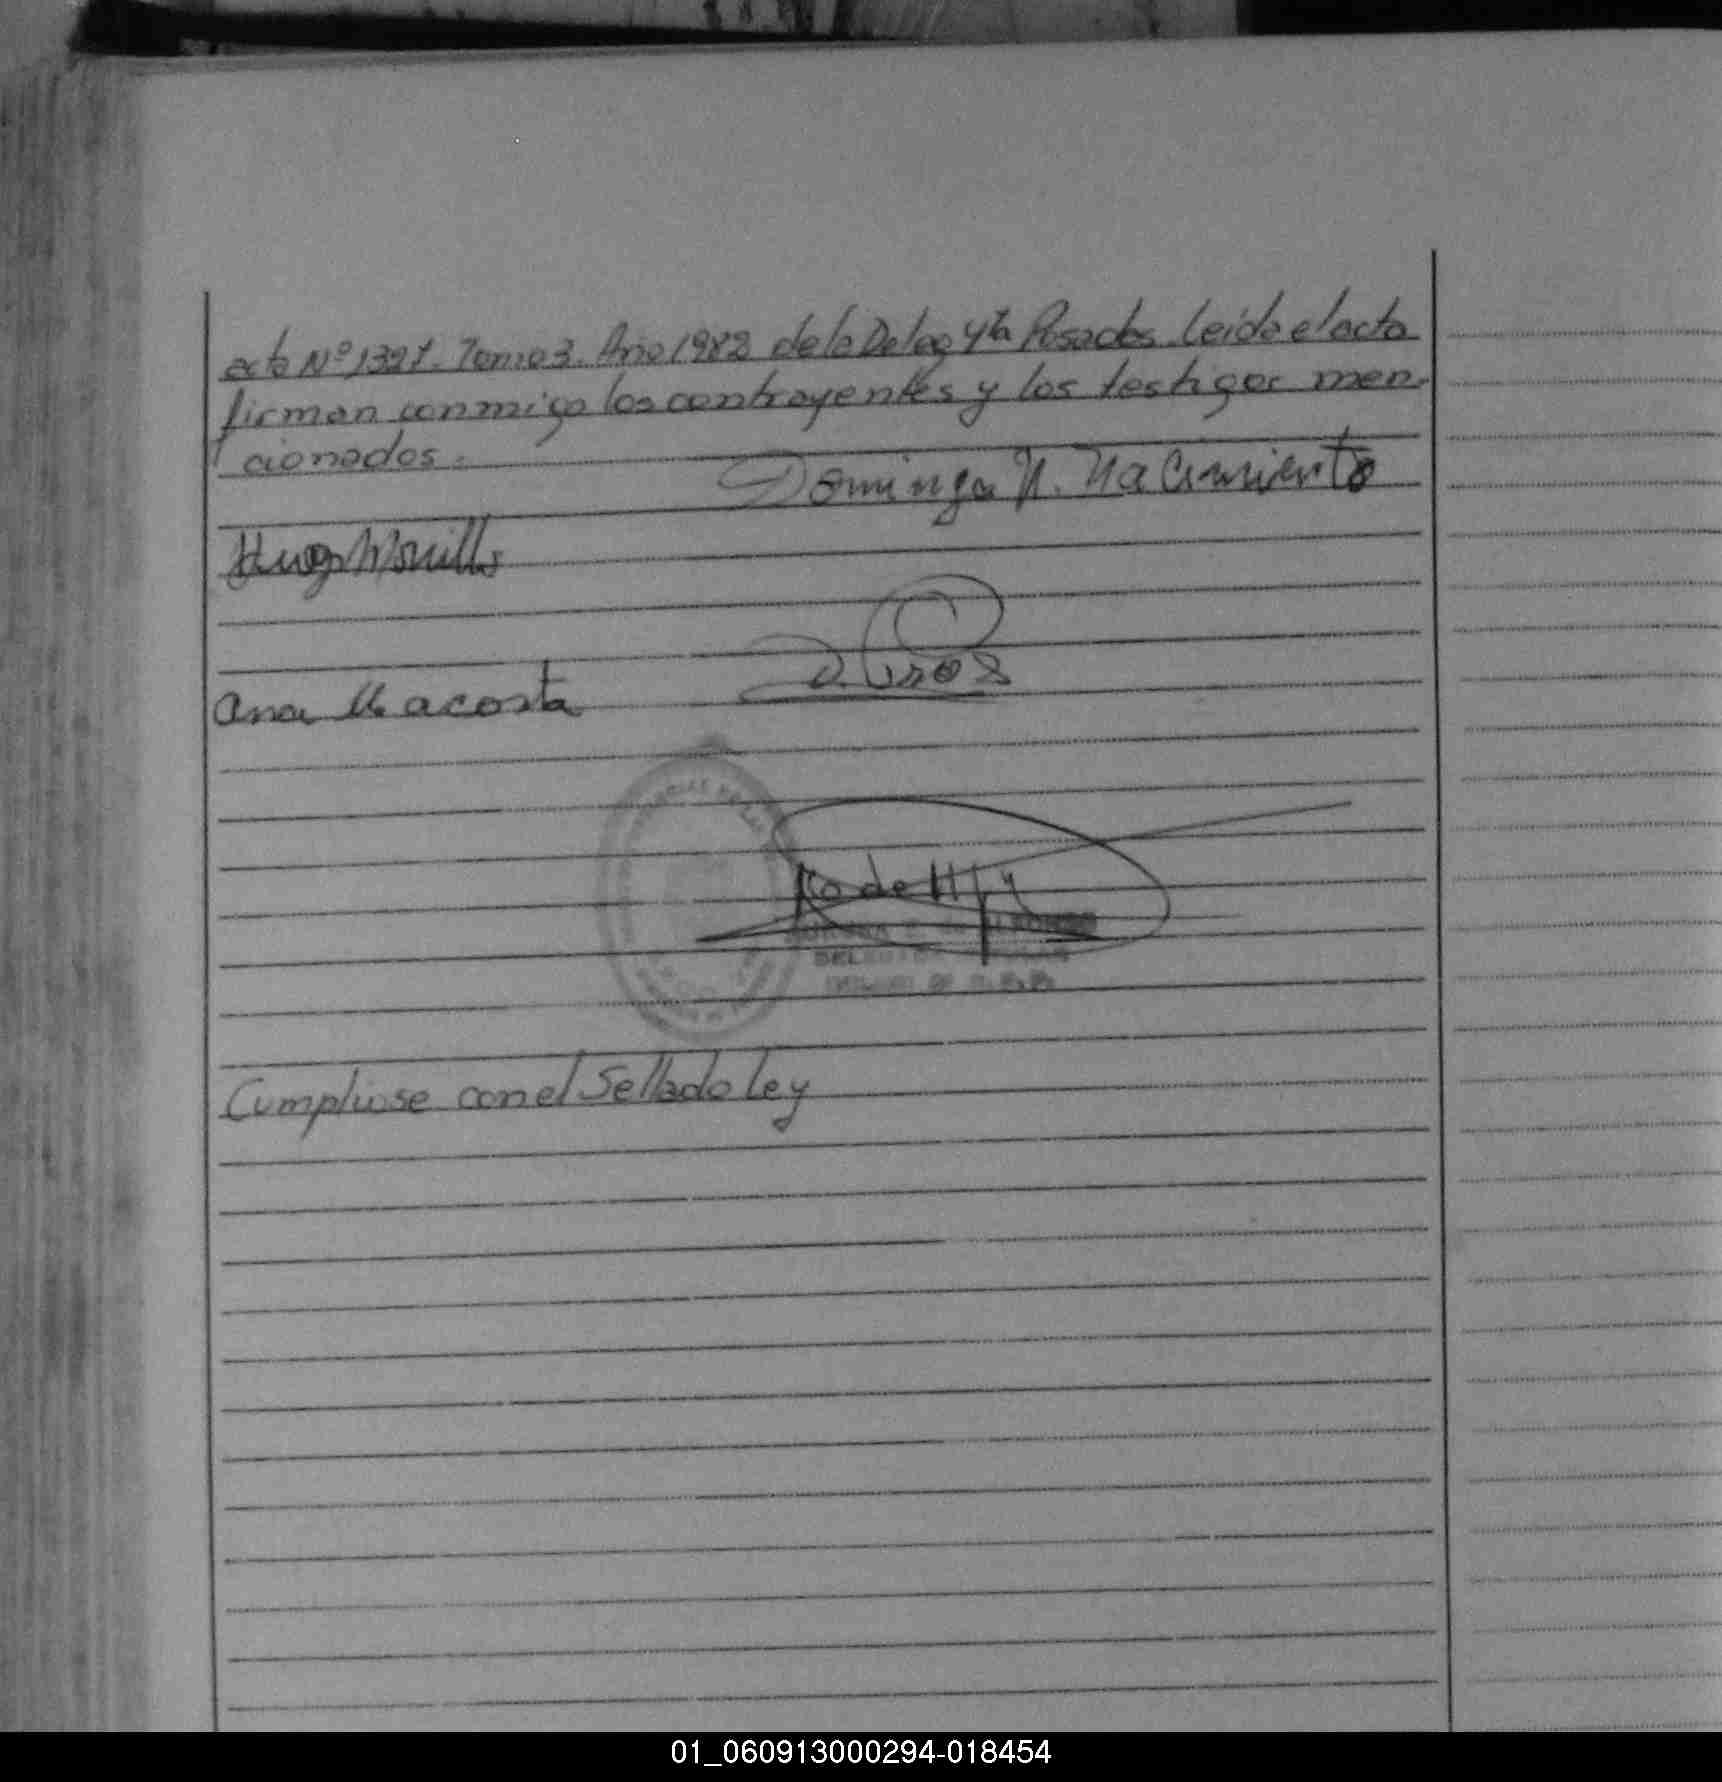 acta Nº 1327. Tomo 3. Año 1982 de la Deleg 4ta Posadas. Leida el acta
firman conmigo los contrayentes y los testigos men-
cionados.
Dominga N. Nacimiento
Hugo Morillo
Ana M acosta
Cumpliose con el Sellado ley
01_060913000294-018454